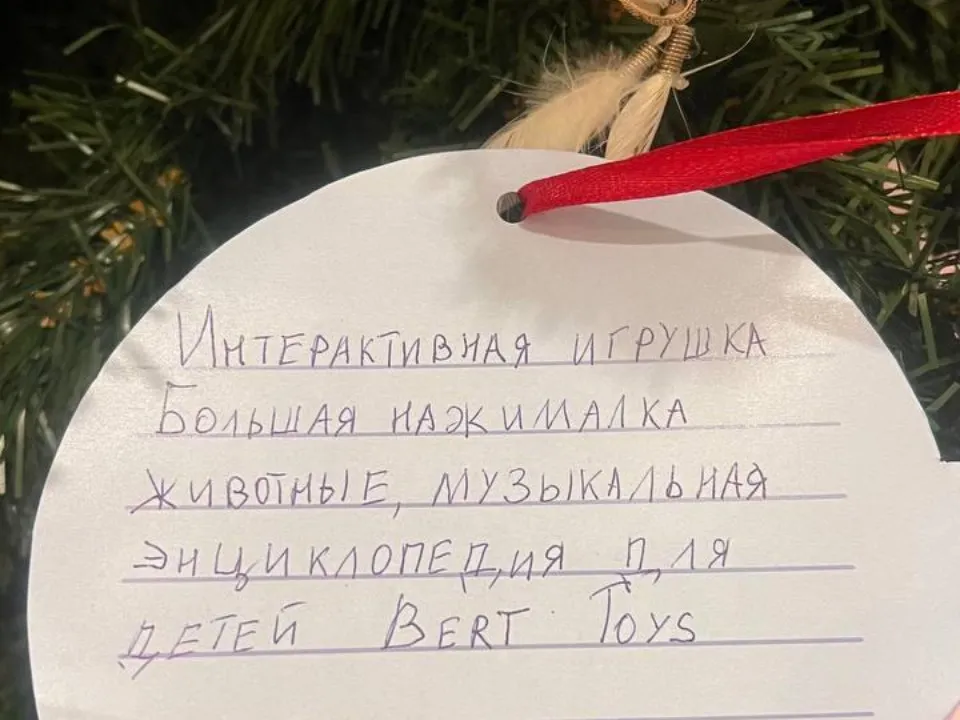 Интерактивная игрушка
Большая нажималка
животные, музыкальная
энциклопедия для
детей Bert Toys